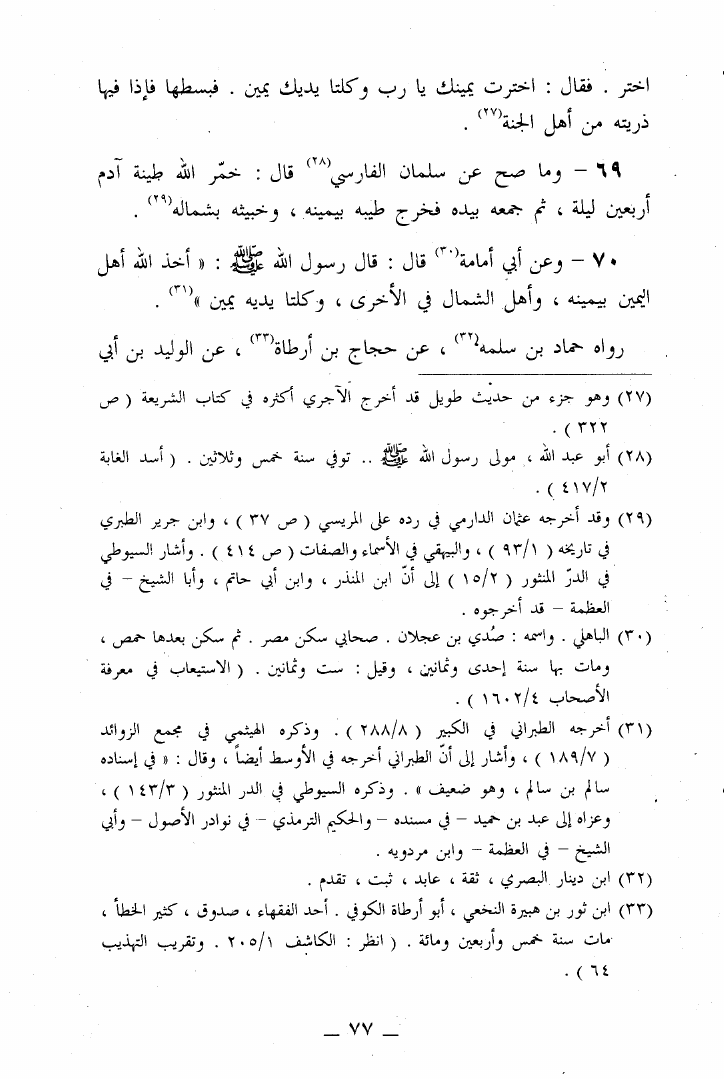 اختر . فقال : اخترت يمينك يا رب وكلتا يديك يمين . فبسطها فإذا فيها
ذريته من أهل الجنة(٢٧) .
٦٩ – وما صح عن سلمان الفارسي(٢٨) قال : خمّر الله طينة آدم
أربعين ليلة ، ثم جمعه بيده فخرج طيبه بيمينه ، وخبيثه بشماله(٢٩) .
٧٠ – وعن أبي أمامة(٣٠) قال : قال رسول الله ﷺ : « أخذ الله أهل
اليمين بيمينه ، وأهل الشمال في الأخرى ، وكلتا يديه يمين »(٣١) .
رواه حماد بن سلمه(٣٢) ، عن حجاج بن أرطاة(٣٣) ، عن الوليد بن أبي
(٢٧) وهو جزء من حديث طويل قد أخرج الآجري أكثره في كتاب الشريعة ( ص
٣٢٢ ) .
(٢٨) أبو عبد الله ، مولى رسول الله ﷺ .. توفي سنة خمس وثلاثين . ( أسد الغابة
٤١٧/٢ ) .
(٢٩) وقد أخرجه عثمان الدارمي في رده على المريسي ( ص ٣٧ ) ، وابن جرير الطبري
في تاريخه ( ٩٣/١ ) ، والبيهقي في الأسماء والصفات ( ص ٤١٤ ) . وأشار السيوطي
في الدرّ المنثور ( ١٥/٢ ) إلى أنّ ابن المنذر ، وابن أبي حاتم ، وأبا الشيخ – في
العظمة – قد أخرجوه .
(٣٠) الباهلي . واسمه : صُدي بن عجلان . صحابي سكن مصر . ثم سكن بعدها حمص ،
ومات بها سنة إحدى وثمانين ، وقيل : ست وثمانين . ( الاستيعاب في معرفة
الأصحاب ١٦٠٢/٤ ) .
(٣١) أخرجه الطبراني في الكبير ( ٢٨٨/٨ ) . وذكره الهيثمي في مجمع الزوائد
( ١٨٩/٧ ) ، وأشار إلى أنّ الطبراني أخرجه في الأوسط أيضاً ، وقال : « في إسناده
سالم بن سالم ، وهو ضعيف » . وذكره السيوطي في الدر المنثور ( ١٤٣/٣ ) ،
وعزاه إلى عبد بن حميد – في مسنده – والحكيم الترمذي – في نوادر الأصول – وأبي
الشيخ – في العظمة – وابن مردويه .
(٣٢) ابن دينار البصري ، ثقة ، عابد ، ثبت ، تقدم .
(٣٣) ابن ثور بن هبيرة النخعي ، أبو أرطاة الكوفي . أحد الفقهاء ، صدوق ، كثير الخطأ ،
مات سنة خمس وأربعين ومائة . ( انظر : الكاشف ٢٠٥/١ . وتقريب التهذيب
٦٤ ) .
– ٧٧ –